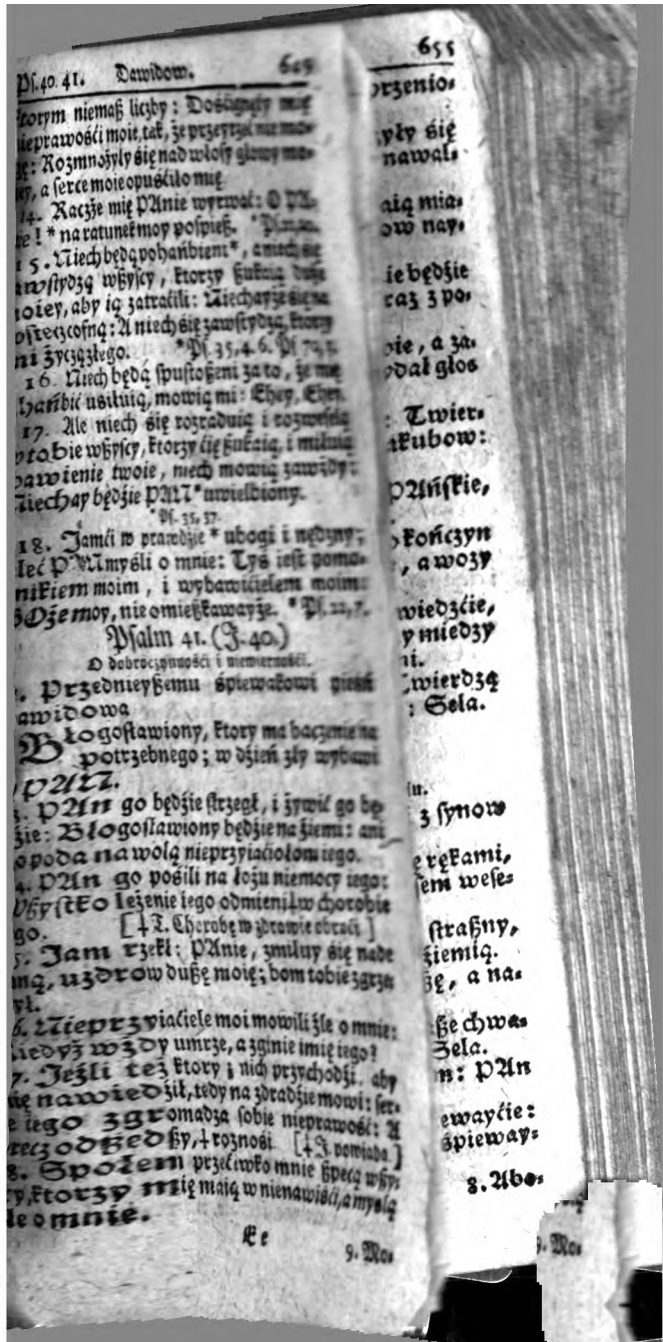 Ps. 40. 41. Dawidow. 649
ktorym niemaß liczby: Dośćignęły mię
nieprawośći moie, tak, że przeyrzeć nie mo-
gę: Rozmnożyły się nad włosy głowy mo-
iey, a serce moie opuśćiło mię
14. Raczże mię PAnie wyrwać: O PA-
nie! * na ratunek moy pospieß.
15. Niech będą pohańbieni*, a niech się
zawstydzą wßyscy, ktorzy ßukaią duße
moiey, aby ią zatraćili: Niechayże się na
wstecz cofną: A niech się zawstydzą, ktorzy
mi życzą złego. *Ps. 35, 4. 6. Ps. 70,
16. Niech będą spustoßeni za to, że mię
hańbić usiłuią, mowią mi: Ehey, Ehey.
17. Ale niech się rozraduią i rozweselą
w tobie wßyscy, ktorzy ćię ßukaią, i miłuią
zbawienie twoie, niech mowią zawżdy:
Niechay będzie PAN* uwielbiony.
*Ps. 35, 37.
18. Jamći w prawdzie * ubogi i nędzny;
aleć PAN myśli o mnie: Tyś iest pomo-
cnikiem moim, i wybawićielem moim:
BOże moy, nie omießkaway że. *Ps. 22, 7.
Psalm 41. (J. 40.)
O dobroczynnośći i niewiernośći.
1. Przednieyßemu śpiewakowi pieśń
Dawidowa
Błogosławiony, ktory ma baczenie na
potrzebnego; w dzień zły wybawi
go PAN.
3. PAn go będzie strzegł, i żywić go bę-
dzie: Błogosławiony będzie na ziemi: ani
go poda na wolą nieprzyiaćiołom iego.
4. PAn go pośili na łożu niemocy iego:
Wßystko leżenie iego odmieni ‡ w chorobie
iego. [‡ T. Chorobę w zdrowie obroći.]
5. Jam rzekł: PAnie, zmiłuy się nade
mną, uzdrow dußę moię; bom tobie zgrze-
ßył.
6. Nieprzyiaćiele moi mowili źle o mnie:
Kiedyż wżdy umrze, a zginie imię iego?
7. Jeźli też ktory z nich przychodzi, aby
mię nawiedził, tedy na zdradzie mowi: ser-
ce iego zgromadza sobie nieprawość: A
precz odßedßy, ‡ roznośi. [‡ J. powiada.]
8. Społem przećiwko mnie ßepcą wßy-
scy, ktorzy mię maią w nienawiśći, a myślą
źle o mnie.
Ee
9. Mo-
655
orzenio-
yły się
nawal-
aią mia-
ow nay-
ie będzie
raz z po-
oie, a za-
ydał głos
: Twier-
akubow:
PAńskie,
kończyn
, a wozy
wiedzćie,
y miedzy
ni.
Twierdzą
: Sela.
z synow
ę rękami,
sem wese-
straßny,
ziemią.
ßę, a na-
ße chwa-
Sela.
m: PAn
ewayćie:
śpieway-
8. Abo-
9. Mo-